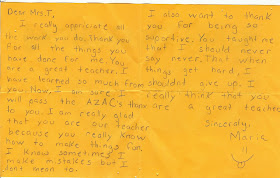 Dear Mrs. T,
I really appriciate all
the work you do. Thank you
for all the things you
have done for me. You
are a great teacher. I
have learned so much from
you. Now, I am sure I
will pass the AZAC's thanx
to you. I am really glad
that you are our teacher
because you really know
how to make things fun.
I know sometimes I
make mistakes but I
dont mean to.
I also want to thank
you for being so
suportive. You taught me
that I should never
say never. That when
things get hard, I
shouldn't give up. I
really think that you
are a great teacher
Sincerely,
Maria